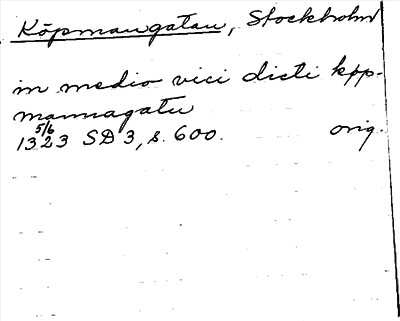 Köpmangatan, Stockholm
in medio vici dicti køp-
mannagatu
1323 5/6 SD 3, s. 600. orig.